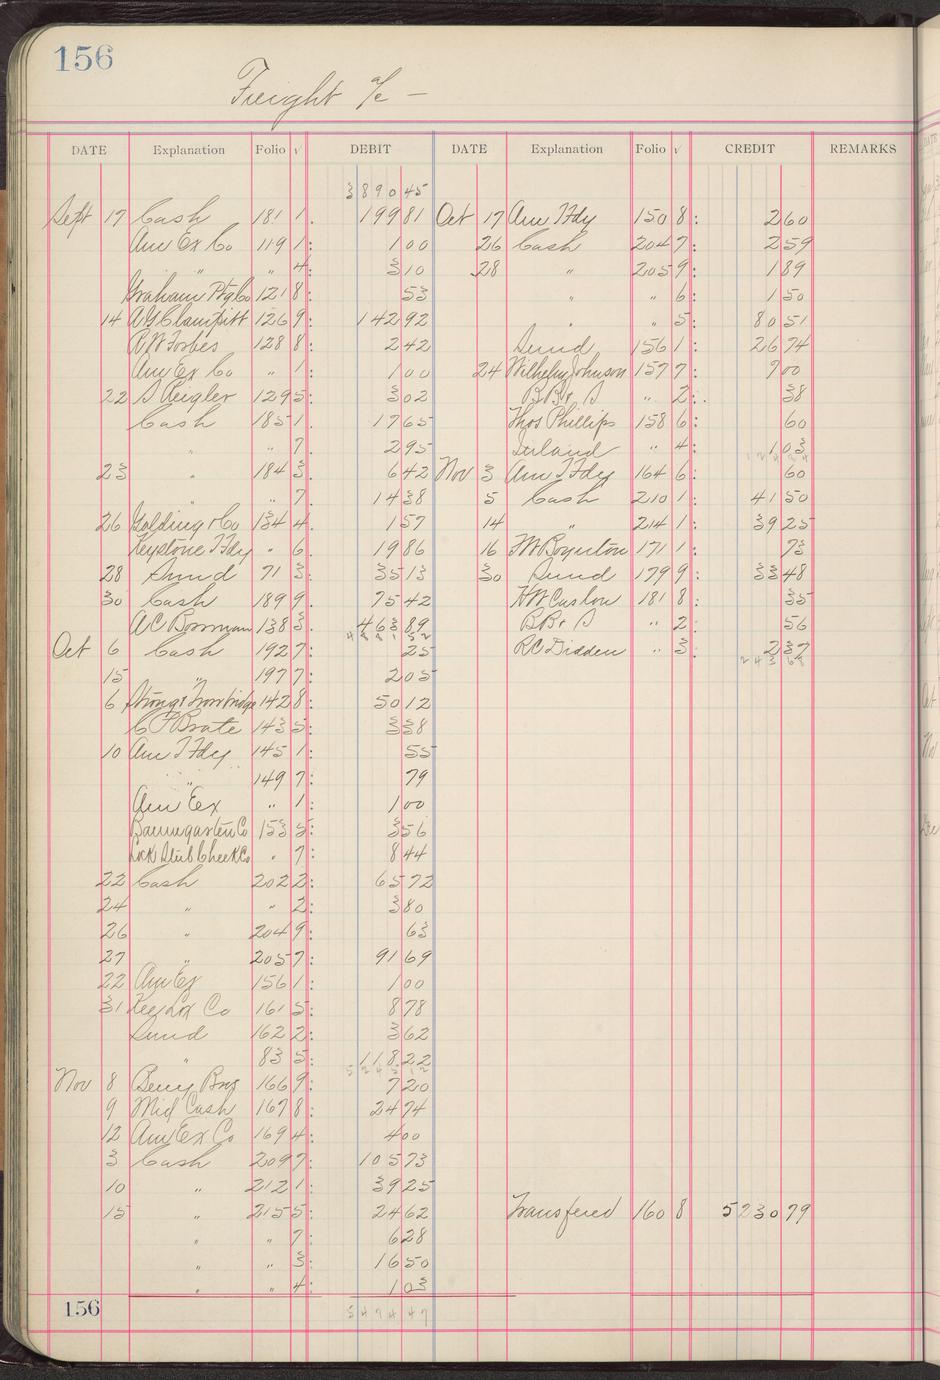 156
Freight a/c —
DATE Explanation Folio √ DEBIT DATE Explanation Folio √ CREDIT REMARKS
3890 45
Sept 17 Cash 181 1. 199 81 Oct 17 Am T Fdy 150 8: 2 60
Am Ex Co 119 1: 1 00 26 Cash 204 7: 2 59
" " 4: 3 10 28 " 205 9: 1 89
Graham Ptg Co 121 8: 53 " " 6: 1 50
14 A G Clampitt 126 9: 142 92 " " 5: 80 51
R W Forbes 128 8: 2 42 Sund 156 1: 26 74
Am Ex Co " 1: 1 00 24 Wilhelm Johnson 157 7: 7 00
22 S Reigler 129 5: 3 02 B B & S " 2: 38
Cash 185 1. 17 65 Thos Phillips 158 6: 60
" " 7. 2 95 Inland " 4: 1 03
23 " 184 3. 6 42 Nov 3 Am T Fdy 164 6: 60
" " 7. 14 38 5 Cash 210 1: 41 50
26 Golding & Co 134 4. 1 57 14 " 214 1: 39 25
Keystone T Fdy " 6. 19 86 16 F W Boynton 171 1: 73
28 Sund 71 3: 35 13 30 Sund 179 9: 33 48
30 Cash 189 9. 75 42 H W Caslon 181 8: 35
A C Bowman 138 3: 463 89 B B & S " 2: 56
Oct 6 Cash 192 7: 25 R C Didden " 3: 2 37
243 68
15 " 197 7: 2 05
6 Strong & Trowbridge 142 8: 50 12
C F Brate 143 5: 3 38
10 Am T Fdy 145 1: 55
" 149 7: 79
Am Ex " 1: 1 00
Baumgarten Co 153 5: 3 56
Lock Stub Check Co " 7: 8 44
22 Cash 202 2: 65 72
24 " " 2: 3 80
26 " 204 9: 63
27 " 205 7: 91 69
22 Am Ex 156 1: 1 00
31 Kee Lox Co 161 5: 8 78
Sund 162 2: 3 62
" 83 5: 118 22
Nov 8 Berry Bros 166 9: 7 20
9 Mid Cash 167 8: 24 74
12 Am Ex Co 169 4: 4 00
3 Cash 209 7: 105 73
10 " 212 1: 39 25
15 " 215 5: 24 62 Transfered 160 8 5230 79
" " 7: 6 28
" " 3: 16 50
" " 4: 1 03
156 5474 47